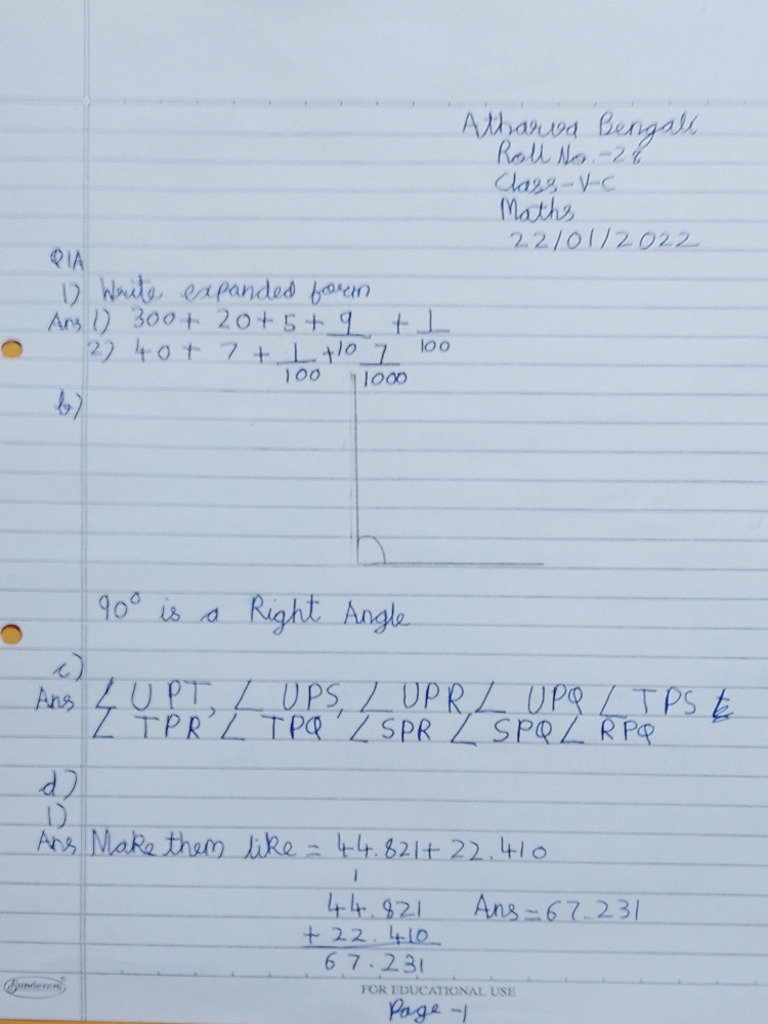 Atharva Bengali
Roll No.-28
Class-V-C
Maths
22/01/2022
Q1A
1) Write expanded form
Ans 1) 300+ 20+5+ 9/10 + 1/100
2) 40+ 7 + 1/100 + 7/1000
b)
90° is a Right Angle
c)
Ans ∠UPT, ∠ UPS, ∠ UPR ∠ UPQ ∠ TPS
∠ TPR ∠ TPQ ∠SPR ∠ SPQ ∠ RPQ
d)
1)
Ans Make them like = 44.821+ 22.410
1
44.821 Ans=67.231
+ 22.410
67.231
Sundaram
FOR EDUCATIONAL USE
Page -1